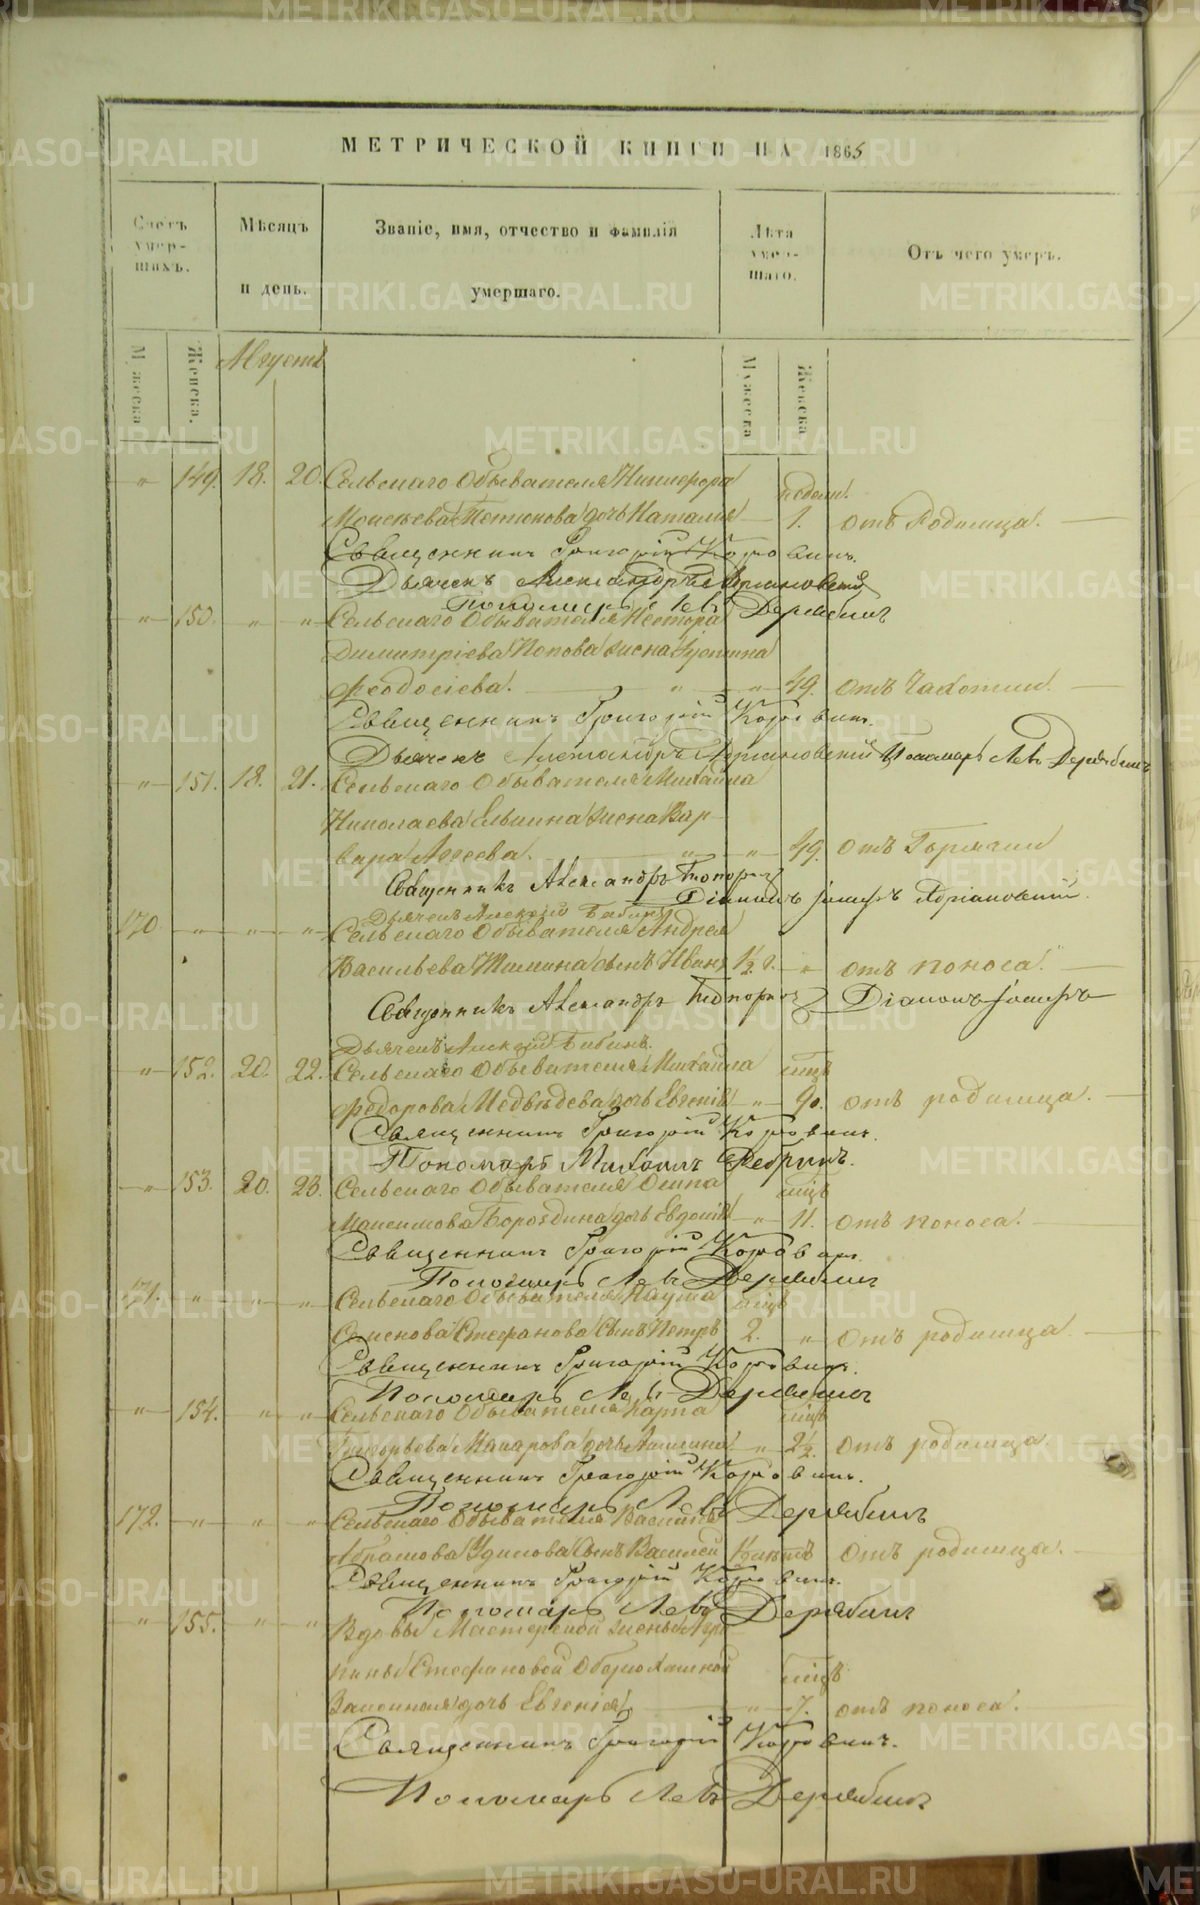 МЕТРИЧЕСКОЙ КНИГИ НА 1865
Счетъ умер-шихъ.
Мѣсяцъ и день.
Званіе, имя, отчество и фамилія умершаго.
Лѣта умер-шаго.
Отъ чего умеръ.
Мужеска
Женска.
Августъ
Мужеска
Женска
" 149. 18. 20. Сельскаго Обывателя Никифора недели.
Моисеева дочь Наталія 1. отъ Родимца.
Священникъ Григорій Коровинъ.
Дьячекъ Александръ Адріановскій
Пономарь Левъ Дерябинъ
" 150. " " Сельскаго Обывателя Нестора
Димитріева Попова жена Іустина
Феодосіева. " " 49. отъ Чахотки.
Священникъ Григорій Коровинъ.
Дьячекъ Александръ Адріановскій Пономарь Левъ Дерябинъ
" 151. 18. 21. Сельскаго Обывателя Михаила
Николаева жена Вар-
вара " " 49. отъ Горячки
Священникъ Александръ Топорковъ
Діаконъ Іосифъ Адріановскій.
Дьячекъ Алексій Бабинъ
170. " " " Сельскаго Обывателя Андрея
Васильева сынъ Иванъ 1½ г. " отъ поноса.
Священникъ Александръ Топорковъ Діаконъ Іосифъ
Дьячекъ Алексій Бабинъ.
" 152. 20. 22. Сельскаго Обывателя Михаила мцъ
Федорова Медведева дочь Евгенія " 9. отъ родимца.
Священникъ Григорій Коровинъ.
Пономарь Михаилъ
" 153. 20. 23. Сельскаго Обывателя Осипа мцъ
Максимова Бороздина дочь Евдокія " 11. отъ поноса.
Священникъ Григорій Коровинъ.
Пономарь Левъ Дерябинъ
171. " " " Сельскаго Обывателя Наума мцъ
Семенова Стефанова сынъ Петръ 2. " отъ родимца.
Священникъ Григорій Коровинъ.
Пономарь Левъ Дерябинъ
" 154. " " Сельскаго Обывателя Карпа мцъ
Григорьева Макарова дочь " 2½. отъ родимца
Священникъ Григорій Коровинъ.
Пономарь Левъ Дерябинъ
172. " " " Сельскаго Обывателя
Абрамова сынъ Василей отъ родимца.
Священникъ Григорій Коровинъ.
Пономарь Левъ Дерябинъ
" 155. " " Вдовы Мастерской жены Агри-
пины Стефановой мцъ
дочь Евгенія " 7. отъ поноса.
Священникъ Григорій Коровинъ.
Пономарь Левъ Дерябинъ
METRIKI.GASO-URAL.RU